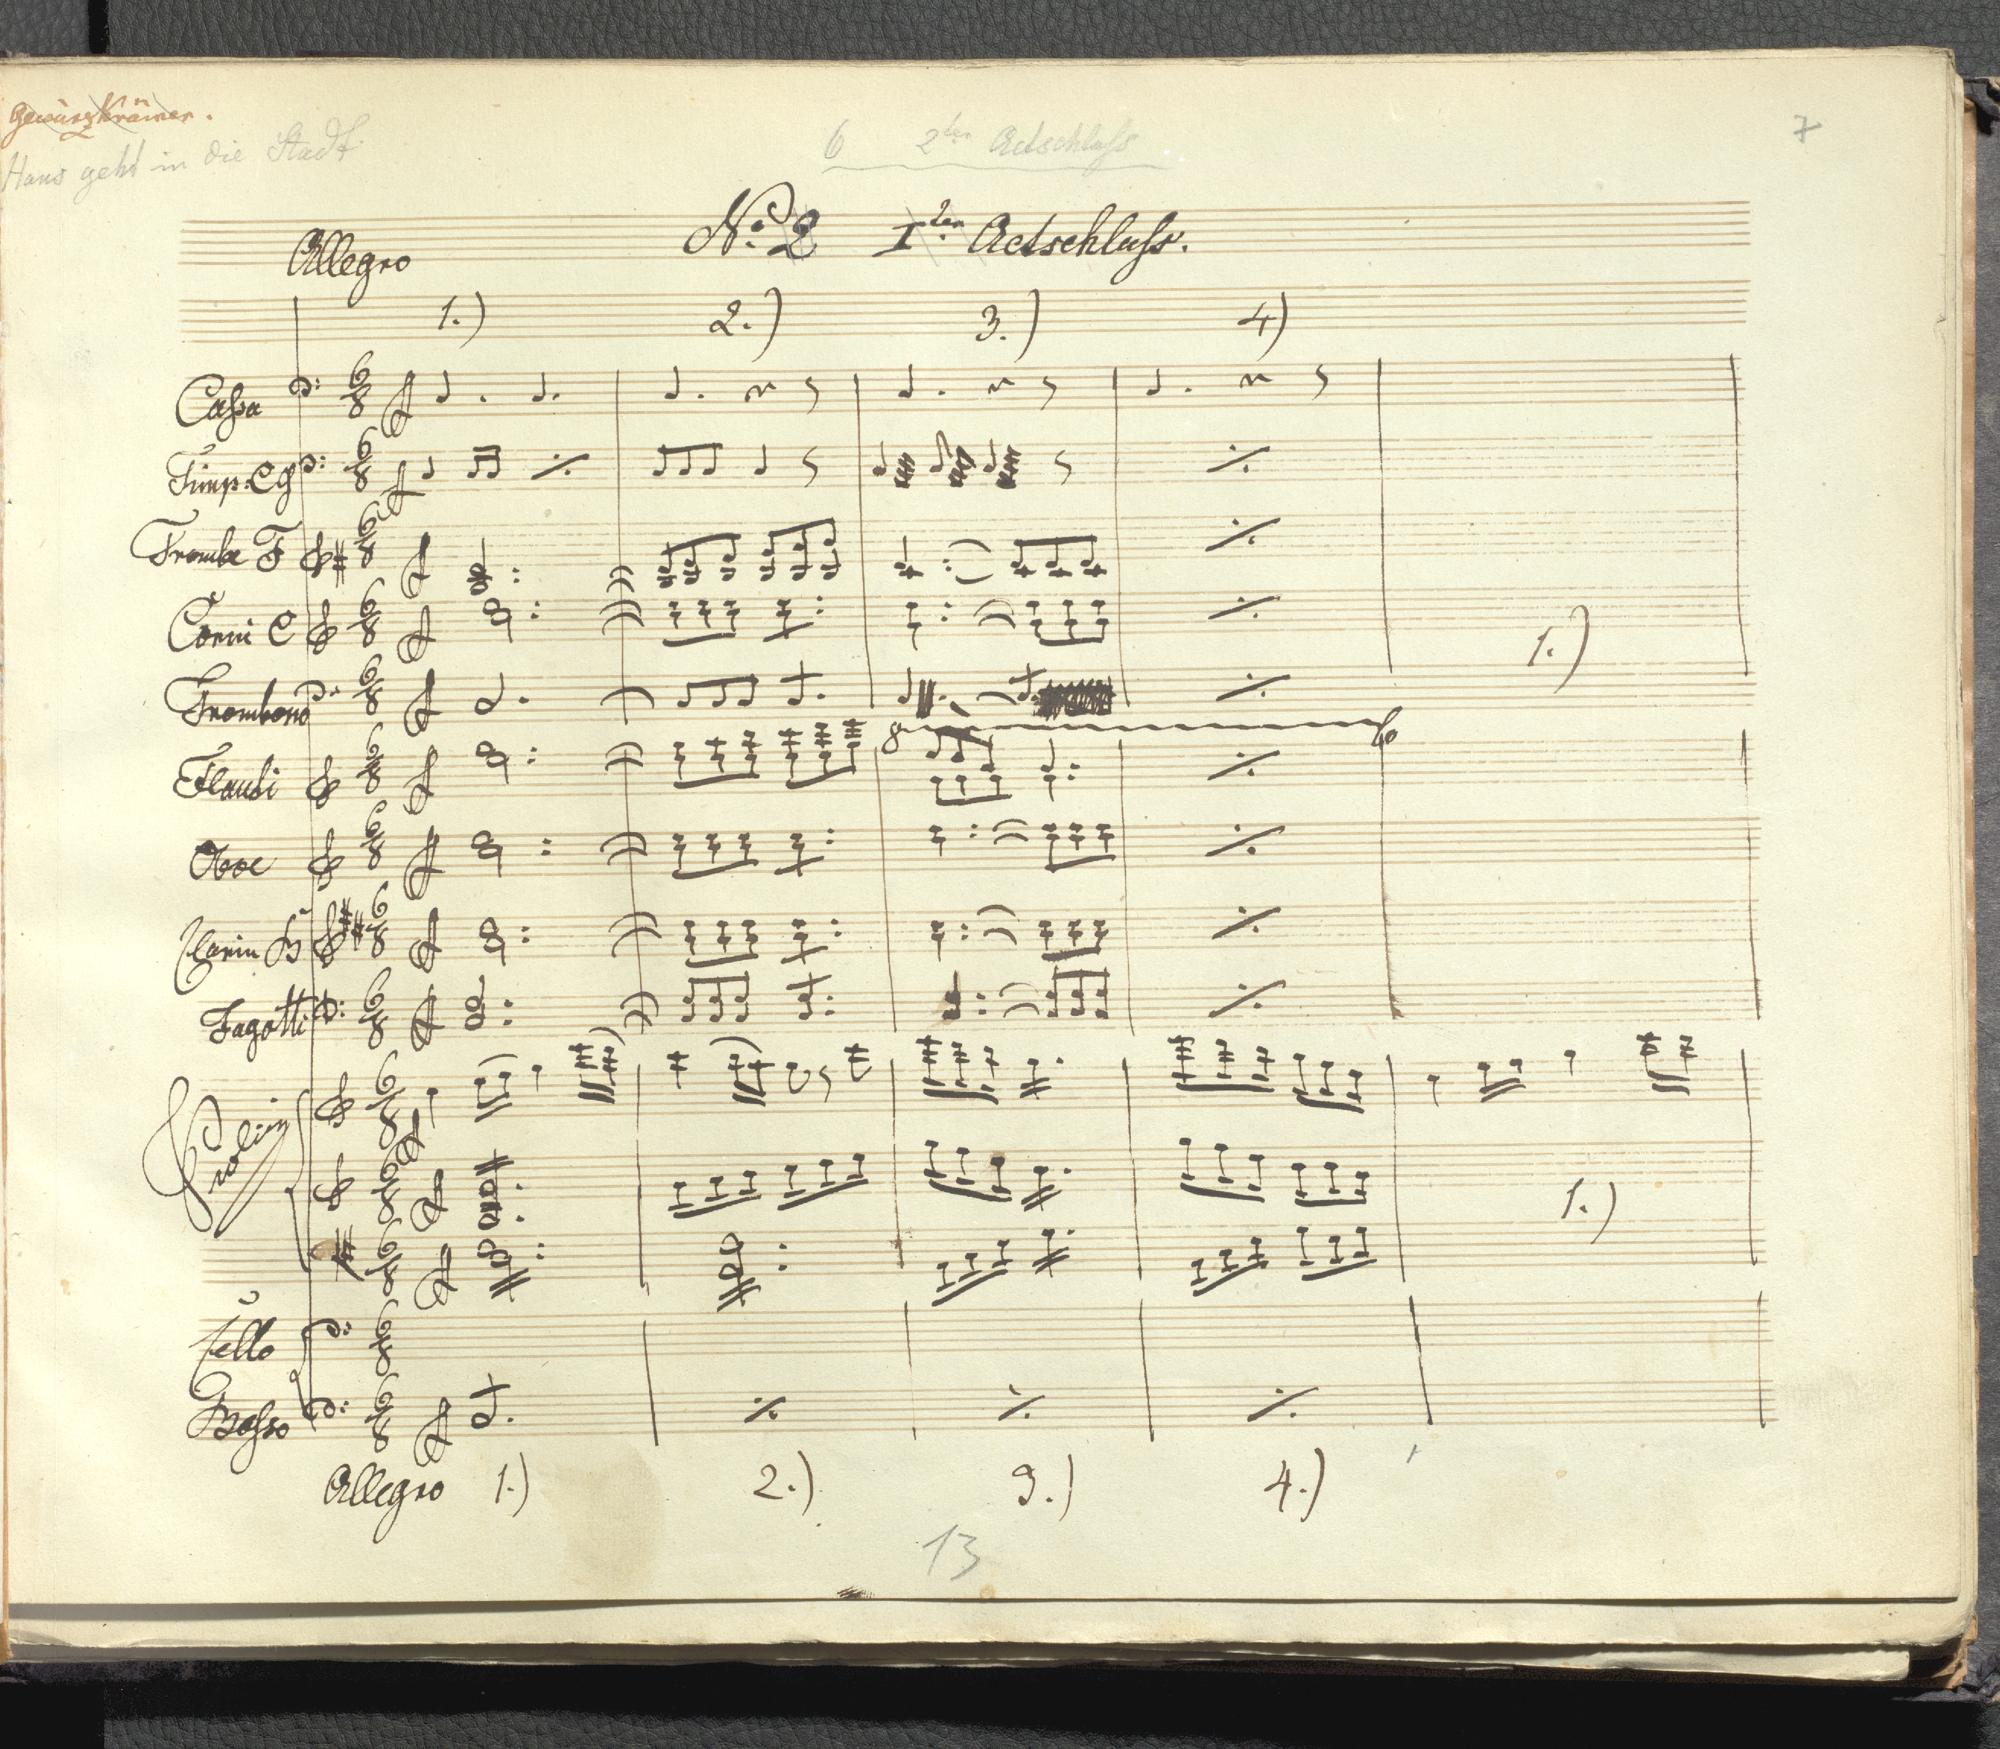 Gewürzkrämer.
Hans geht in die Stadt
6 2ter Actschluss
7
No. 2 I 2ter Actschluss.
Allegro
1.) 2.) 3.) 4)
Cassa 6/8 ff
Timp. C G 6/8 ff
Trombe F 6/8 ff
Corni C 6/8 ff
1.)
Trombono 6/8 ff
8
Flauti 6/8 ff
Oboe 6/8 ff
Clarin B 6/8 ff
Fagotti 6/8 ff
Violin 6/8 ff
6/8 ff
1.)
6/8 ff
Cello 6/8
Basso 6/8 ff
Allegro 1.) 2.) 3.) 4.)
13